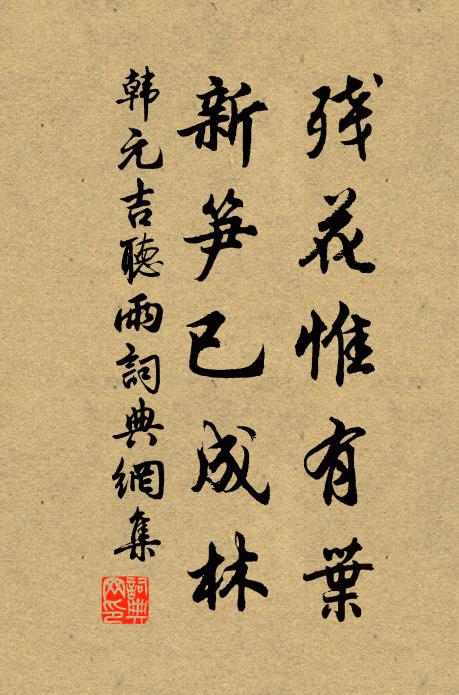 残花惟有葉
新笋已成林
韩元吉聽雨詞典網集
詞典
网印